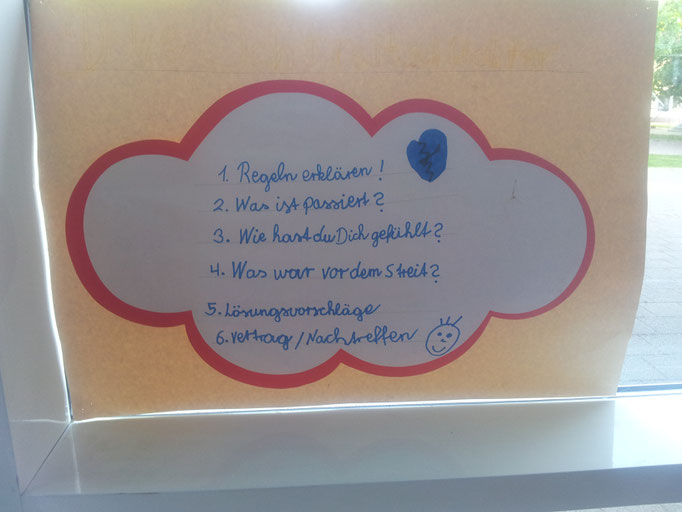 1. Regeln erklären!
2. Was ist passiert?
3. Wie hast du Dich gefühlt?
4. Was war vor dem Streit?
5. Lösungsvorschläge
6. Vertrag/Nachtreffen